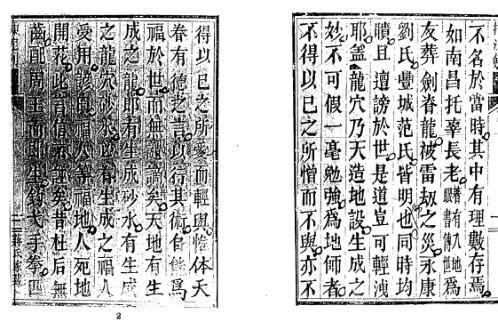 不名於當時其中有理數存焉
如南昌托辜長老有八地傳世爲
友葬劍脊龍被雷刼之災永康
劉氏豐城范氏皆明也同時均
且遭謗於世是道豈可輕淺
耶葢龍穴乃天造地設生成之
妙不可假一毫勉強爲地師者
不得以巳之所憎而不與亦不
得以巳之所愛而輕與惟体天
眷有德之言以行其術自能爲
福於世而無譴矣天地有生
成之龍即有生成砂水有生成
之龍穴砂水必有生成之福人
用諺曰福人葬福地人死地
開花此言信不誣矣昔杜后無
齒配周王而即生鉤弋手拳四
2